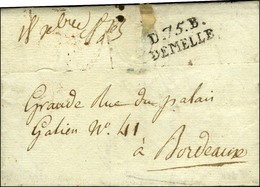 D.75.B.
DEMELLE
Grande Rue du palais
Galien N.° 41
à Bordeaux